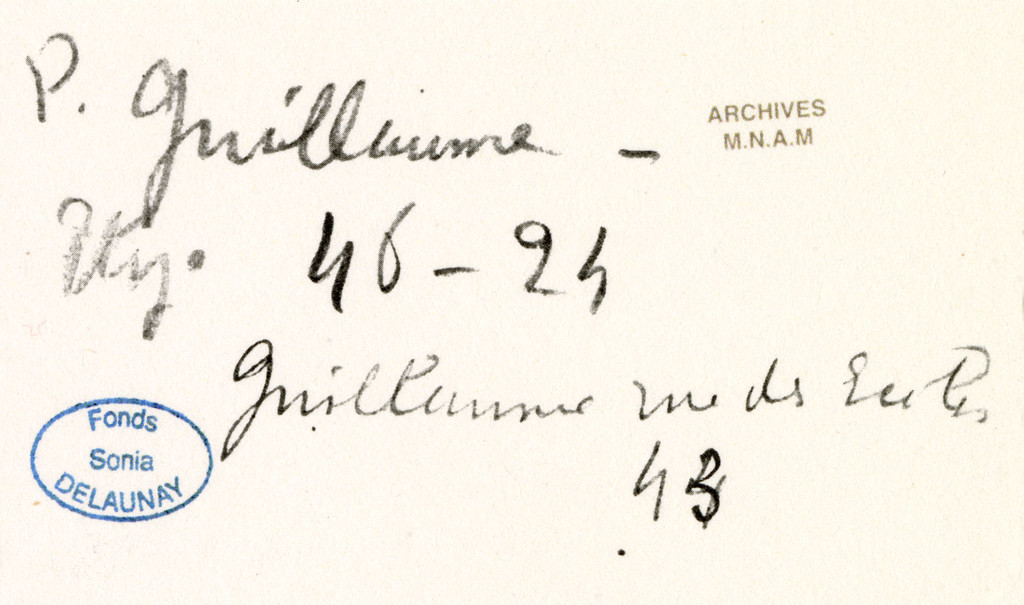 P. Guillaume –
ARCHIVES
M.N.A.M
46 – 24
Guillaume rue des Ecoles
43
Fonds
Sonia
DELAUNAY